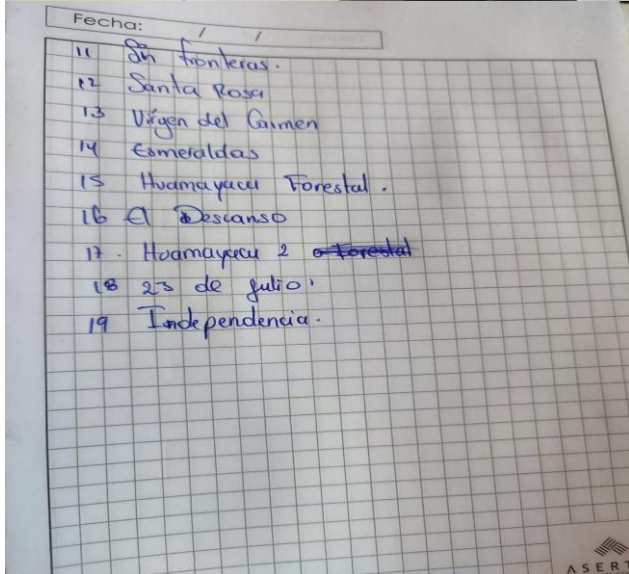 Fecha: / /
11 Sin fronteras.
12 Santa Rosa
13 Virgen del Carmen
14 Esmeraldas
15 Huamayacu Forestal.
16 El Descanso
17. Huamayacu 2 o Forestal
18 23 de julio.
19 Independencia.
ASERT